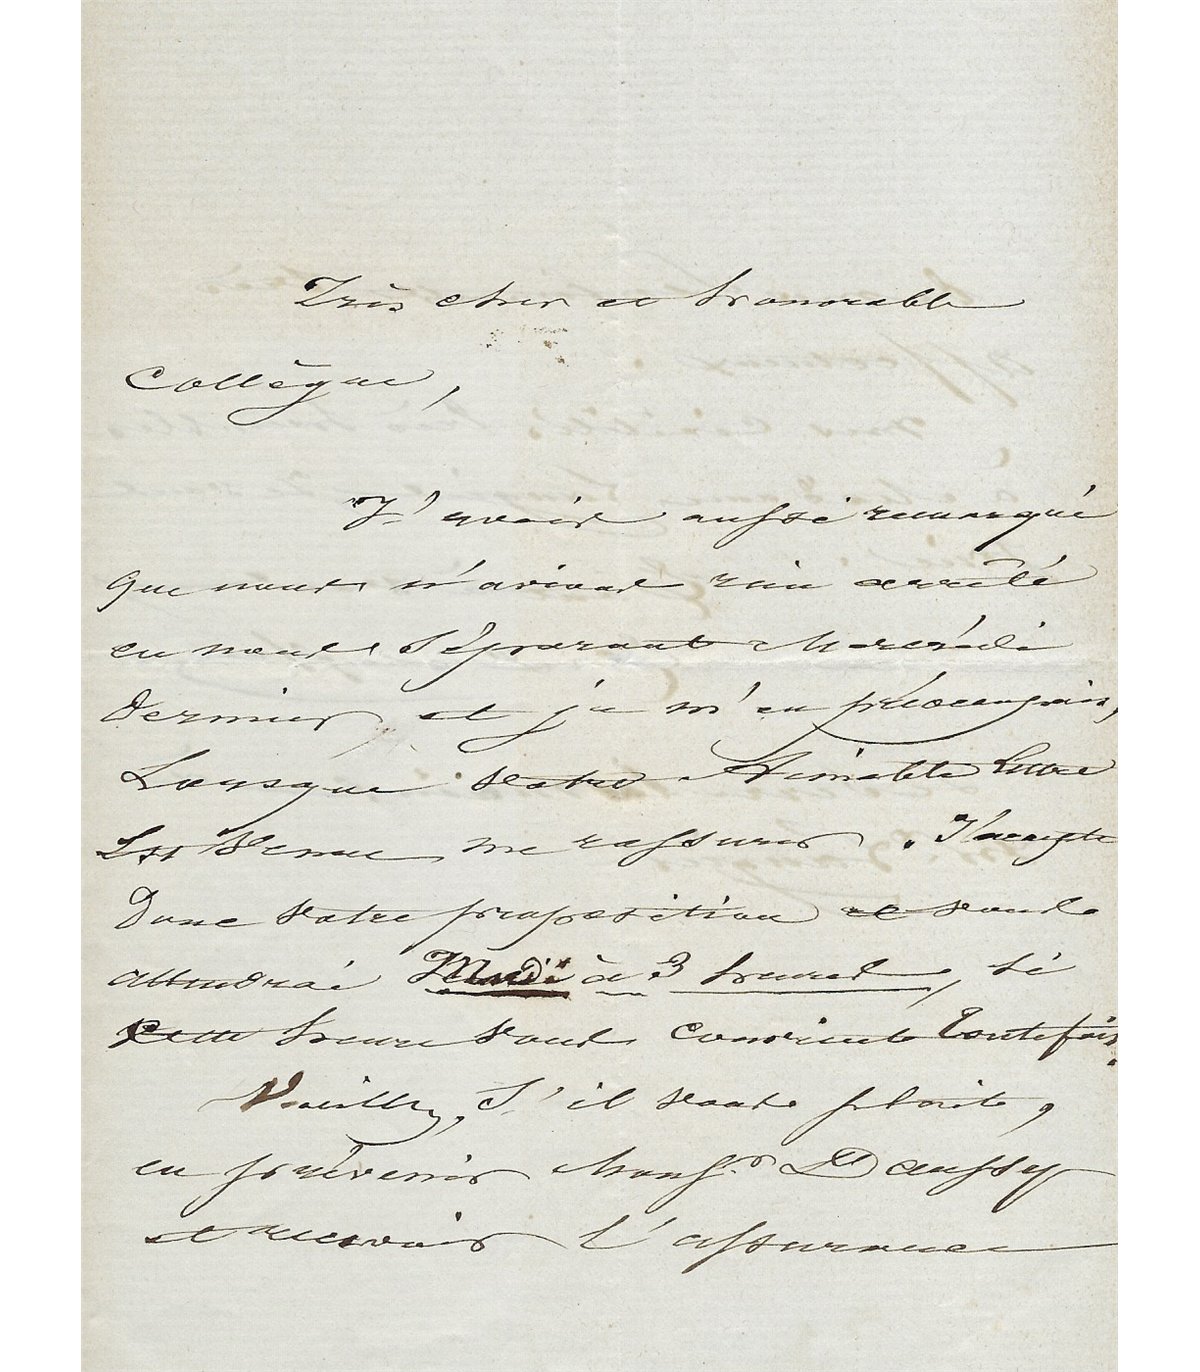 Très cher et honorable
Collègue,
J'avois aussi remarqué
que nous n'avions rien arrêté
en nous séparant Mercrédi
dernier et je m'en préoccupois,
Lorsque votre Aimable Lettre
Est venue me rassurer. J'accepte
Donc votre proposition et vous
attendrai à 3 heures, si
Cette heure vous convient toutefois.
Veuillez, S'il vous plaite,
en prévenir Monsr. Daussy
et recevoir l'assurance